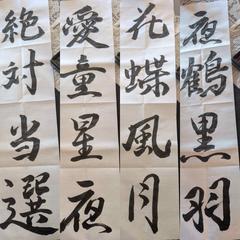 夜鶴黒羽
花蝶風月
愛童星夜
絶対当選